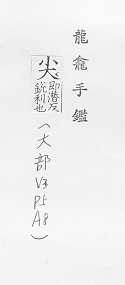 龍龕手鑑
尖 即潜反
銳利也
(大部
V3
P5
A8
)